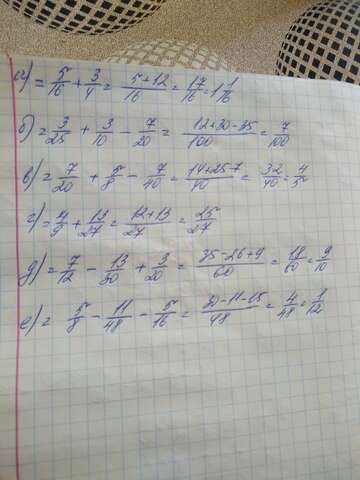 а) = 5/16 + 3/4 = 5+12/16 = 17/16 = 1 1/16
б) = 3/25 + 3/10 - 7/20 = 12+30-35/100 = 7/100
в) = 7/20 + 5/8 - 7/40 = 14+25-7/40 = 32/40 = 4/5
г) = 4/9 + 13/27 = 12+13/27 = 25/27
д) = 7/12 - 13/30 + 3/20 = 35-26+9/60 = 18/60 = 9/10
е) = 5/8 - 11/48 - 5/16 = 30-11-15/48 = 4/48 = 1/12